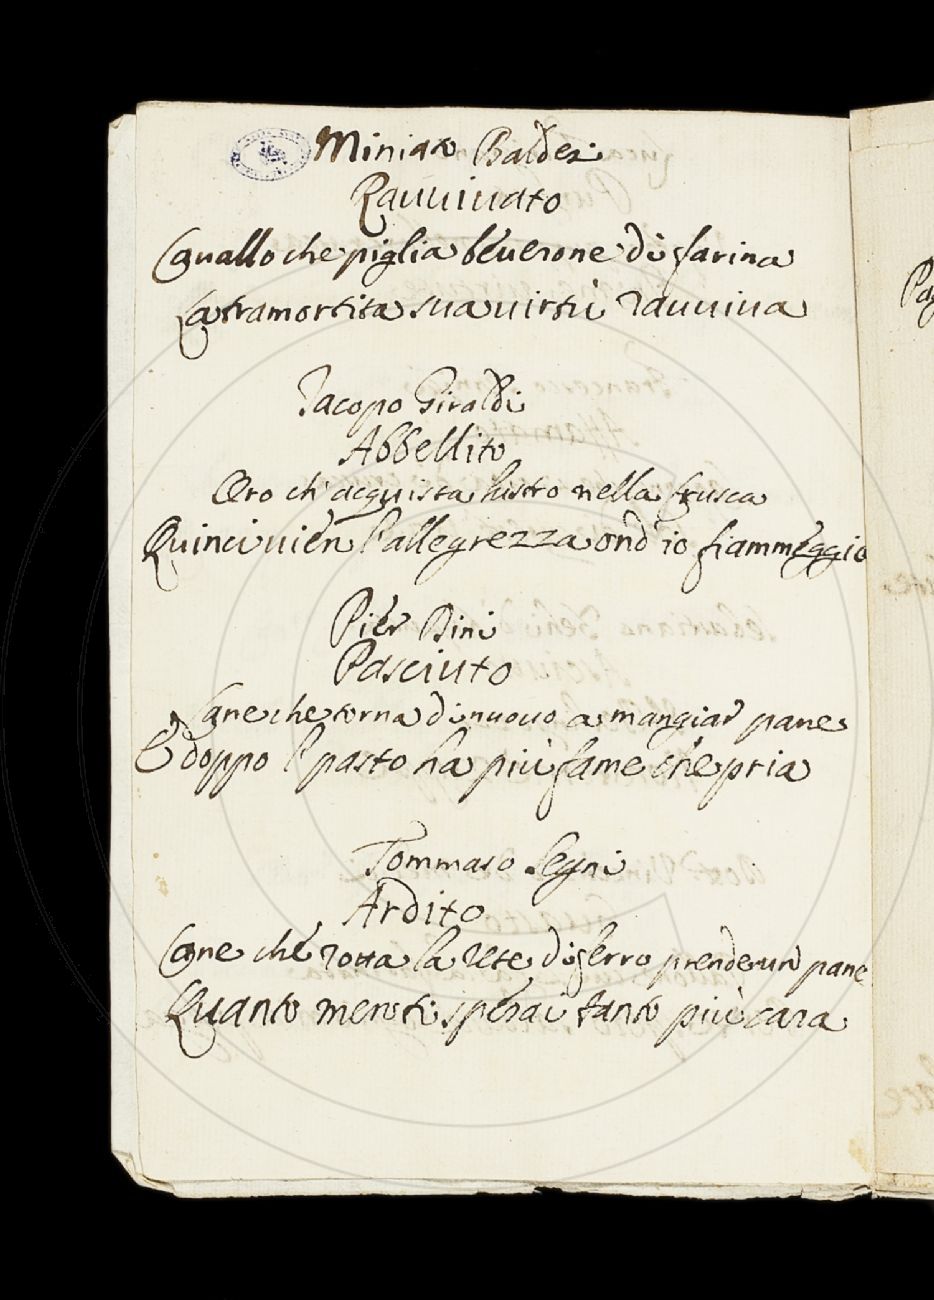 Miniato Baldesi
Rauuiuato
Cauallo che piglia beuerone di farina
La tramortita sua uirtù rauuiua
Jacopo Giraldi
Abbellito
Oro ch' acquista lustro nella crusca
Quinci uien l'allegrezza ond' io fiammeggio
Pier Bini
Pasciuto
Cane che torna di nuouo a mangiar pane
E doppo l pasto ha più fame che pria
Tommaso Segni
Ardito
Cane che rotta la rete di ferro prende un pane
Quanto men ti sperai tanto più cara
Pag